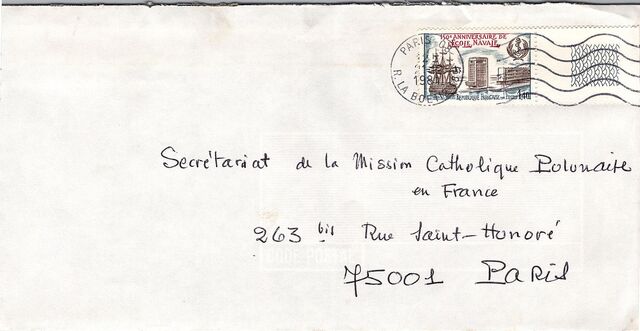 150e ANNIVERSAIRE DE
L'ECOLE NAVALE
PARIS
R. LA BOETIE
RÉPUBLIQUE FRANÇAISE
1.40
Secrétariat de la Mission Catholique Polonaise
en France
263 bis Rue Saint-Honoré
75001 Paris
CODE POSTAL